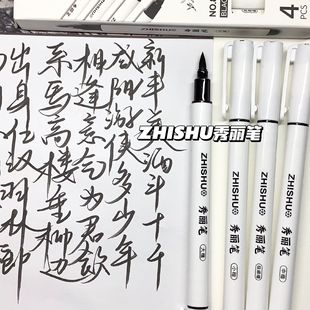 4
PCS
BLACK
ZHISHU秀丽笔
新丰美酒斗十千
咸阳游侠多少年
相逢意气为君饮
系马高楼垂柳边
出身仕汉羽林郎
ZHISHU 秀丽笔 大楷
ZHISHU 秀丽笔 小楷
ZHISHU 秀丽笔
ZHISHU 秀丽笔 中楷